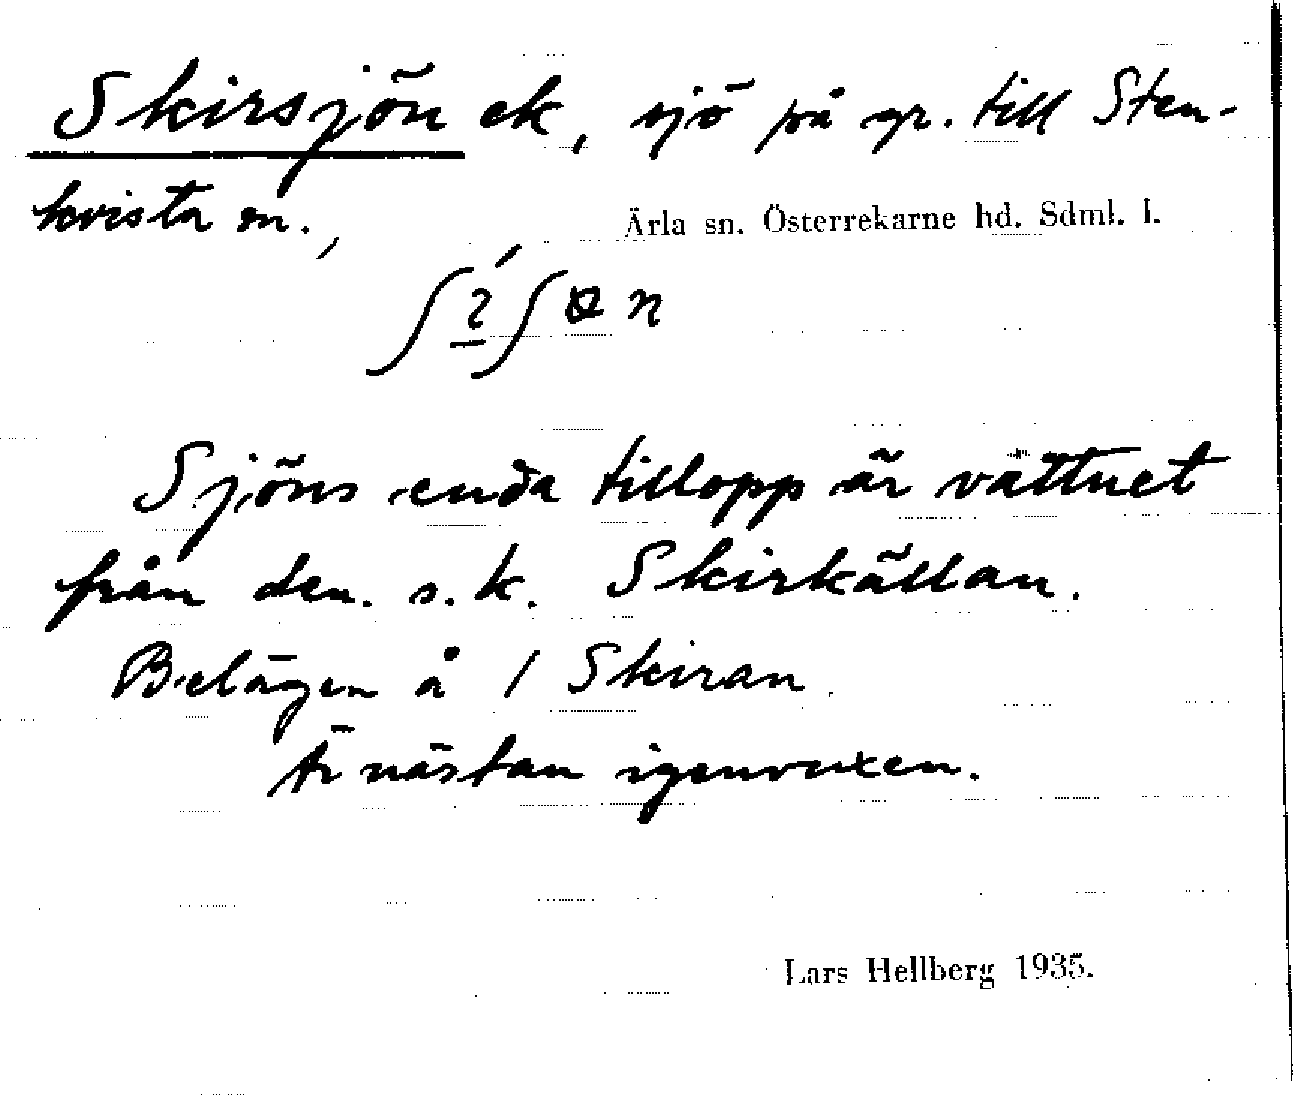 Skirsjön ek, sjö på gr. till Sten-
kvista sn.,
Ärla sn. Österrekarne hd. Sdml. l.
Sjöns enda tillopp är vattnet
från den s.k. Skirkällan.
Belägen å 1 Skiran.
Är nästan igenvuxen.
Lars Hellberg 1935.